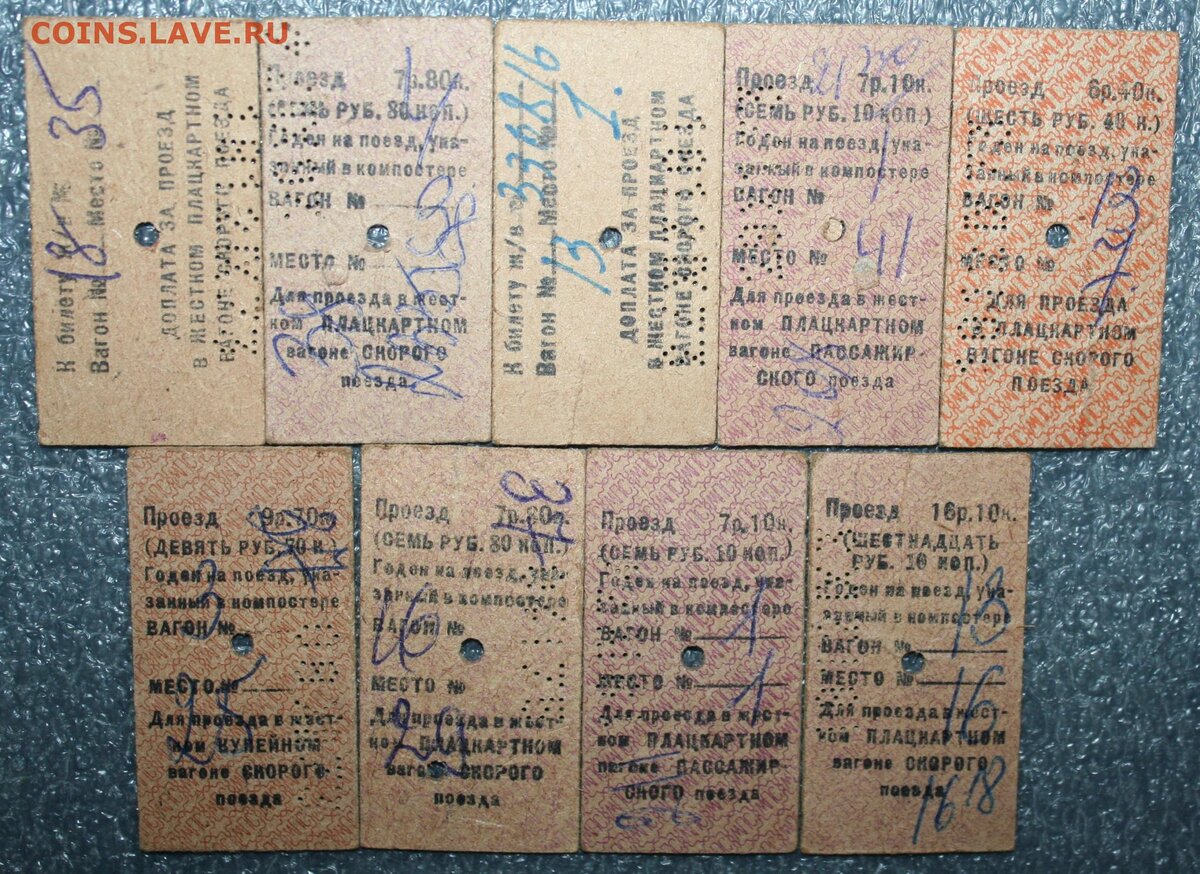 COINS.LAVE.RU
К билету №
Вагон № 18 Место № 35
ДОПЛАТА ЗА ПРОЕЗД
В ЖЕСТНОМ ПЛАЦКАРТНОМ
ВАГОНЕ СКОРОГО ПОЕЗДА
Проезд 7р.80к.
(СЕМЬ РУБ. 80 КОП.)
Годен на поезд, ука-
занный в компостере
ВАГОН №
МЕСТО №
Для проезда в жест-
ком ПЛАЦКАРТНОМ
вагоне СКОРОГО
поезда
К билету м/в № 330816
Вагон № 13 Место № 1.
ДОПЛАТА ЗА ПРОЕЗД
В ЖЕСТНОМ ПЛАЦКАРТНОМ
ВАГОНЕ СКОРОГО ПОЕЗДА
Проезд 7р.10к.
(СЕМЬ РУБ. 10 КОП.)
Годен на поезд, ука-
занный в компостере
ВАГОН № 1
МЕСТО № 41
Для проезда в жест-
ком ПЛАЦКАРТНОМ
вагоне ПАССАЖИР-
СКОГО поезда
Проезд 6р.40к.
(ШЕСТЬ РУБ. 40 К.)
Годен на поезд, ука-
занный в компостере
ВАГОН № 13
МЕСТО № 7
ДЛЯ ПРОЕЗДА
В ПЛАЦКАРТНОМ
ВАГОНЕ СКОРОГО
ПОЕЗДА
Проезд 9р.70к.
(ДЕВЯТЬ РУБ. 70 К.)
Годен на поезд, ука-
занный в компостере
ВАГОН № 3
МЕСТО № 25
Для проезда в жест-
ком КУПЕЙНОМ
вагоне СКОРОГО
поезда
34
Проезд 7р.80к.
(СЕМЬ РУБ. 80 КОП.)
Годен на поезд, ука-
занный в компостере
ВАГОН № 16
МЕСТО № 29
Для проезда в жест-
ком ПЛАЦКАРТНОМ
вагоне СКОРОГО
поезда
Проезд 7р.10к.
(СЕМЬ РУБ. 10 КОП.)
Годен на поезд, ука-
занный в компостере
ВАГОН № 1
МЕСТО № 1
Для проезда в жест-
ком ПЛАЦКАРТНОМ
вагоне ПАССАЖИР-
СКОГО поезда
Проезд 16р.10к.
(ШЕСТНАДЦАТЬ
РУБ. 10 КОП.)
Годен на поезд, ука-
занный в компостере
ВАГОН № 13
МЕСТО № 16
Для проезда в жест-
ком ПЛАЦКАРТНОМ
вагоне СКОРОГО
поезда